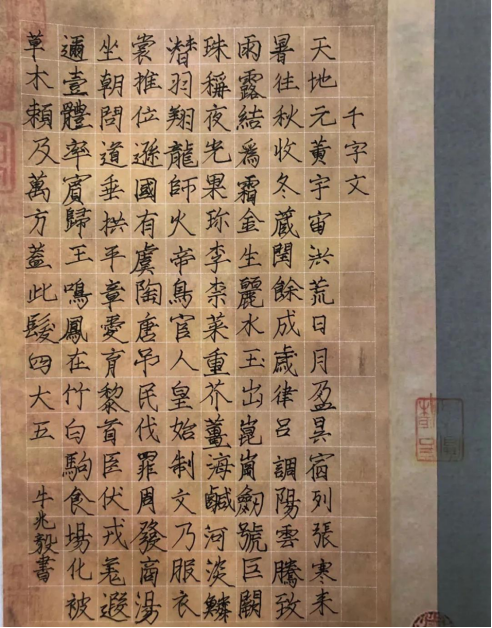 千字文
天地元黃宇宙洪荒日月盈昃宿列張寒来
暑往秋收冬藏閏餘成歲律呂調陽雲騰致
雨露結爲霜金生麗水玉出崑崗劒號巨闕
珠稱夜光果珎李柰菜重芥薑海鹹河淡鱗
潛羽翔龍師火帝鳥官人皇始制文乃服衣
裳推位遜國有虞陶唐吊民伐罪周發商湯
坐朝問道垂拱平章愛育黎首臣伏戎羌遐
邇壹體率賓歸王鳴鳳在竹白駒食場化被
草木賴及萬方蓋此髮四大五
牛兆毅書